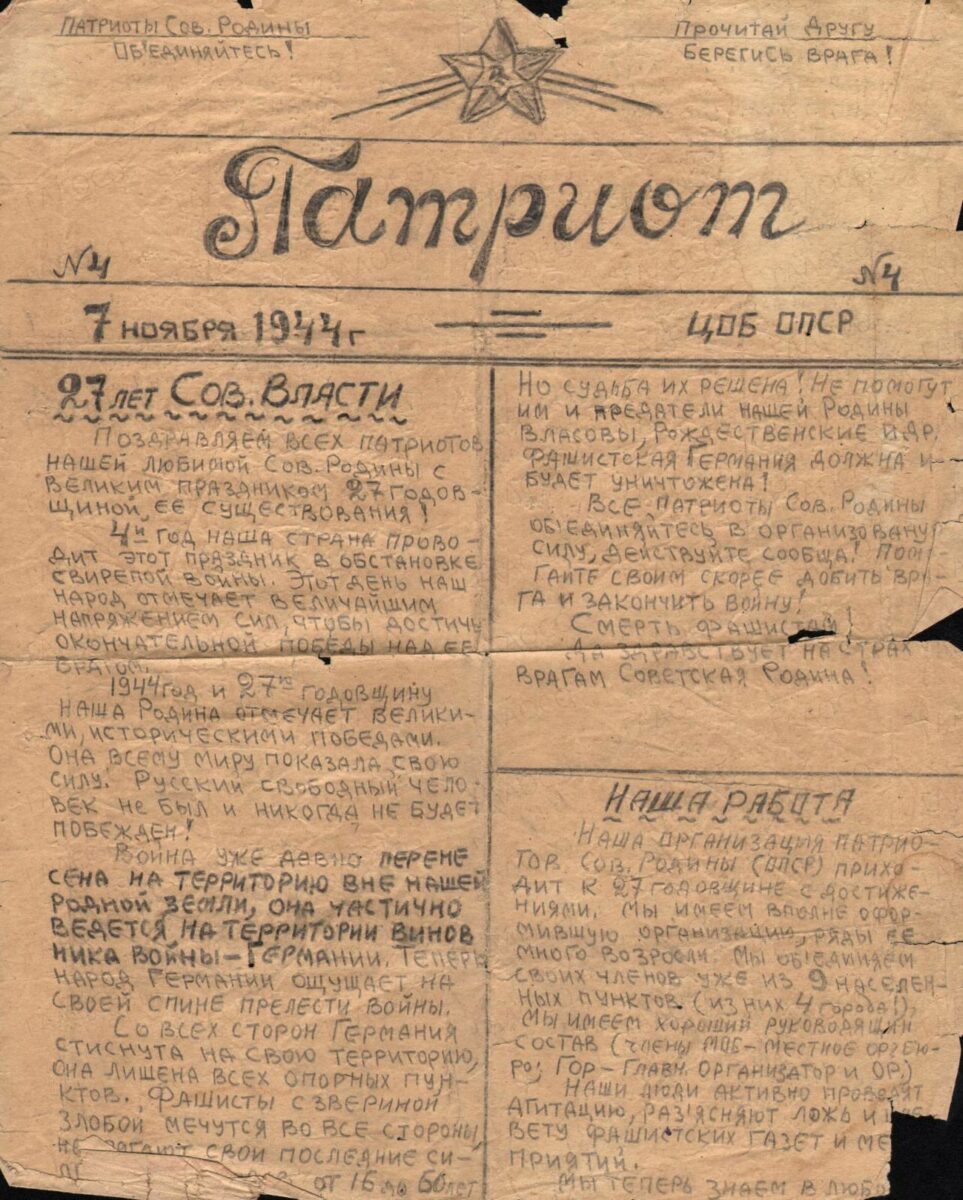 Патриоты Сов. Родины
Об'единяйтесь!
Прочитай другу
Берегись врага!
Патриот
№4
№4
7 ноября 1944 г
ЦОБ ОПСР
27 лет Сов. Власти
Поздравляем всех патриотов
нашей любимой Сов. Родины с
великим праздником 27 годов-
щиной ее существования!
4й год наша страна прово-
дит этот праздник в обстановке
свирепой войны. Этот день наш
народ отмечает величайшим
напряжением сил, чтобы достичь
окончательной победы над ее
врагом.
1944 год и 27ю годовщину
наша Родина отмечает велики-
ми, историческими победами.
Она всему миру показала свою
силу. Русский свободный чело-
век не был и никогда не будет
побежден!
Война уже давно перене
сена на территорию вне нашей
родной земли, она частично
ведется на территории винов
ника войны – Германии. Теперь
народ Германии ощущает на
своей спине прелести войны.
Со всех сторон Германия
стиснута на свою территорию,
она лишена всех опорных пун-
ктов. Фашисты с звериной
злобой мечутся во все стороны,
свои последние си-
от 16 до 60 лет
Но судьба их решена! Не помогут
им и предатели нашей Родины
Власовы, Рождественские и др.
Фашистская Германия должна и
будет уничтожена!
Все патриоты Сов. Родины
об'единяйтесь в организовану
силу, действуйте сообща! Помо-
гайте своим скорее добить вра-
га и закончить войну!
Смерть фашистам!
Да здравствует на страх
врагам Советская Родина!
Наша работа
Наша организация патрио-
тов Сов. Родины (ОПСР) прихо-
дит к 27 годовщине с достиже-
ниями. Мы имеем вполне офор-
мившую организацию, ряды ее
много возросли. Мы об'единяем
своих членов уже из 9 населен-
ных пунктов (из них 4 города!).
Мы имеем хороший руководящий
состав (члены МОБ – местное оргбю-
ро; Гор – Главн. организатор и ОР.)
Наши люди активно проводят
агитацию, раз'ясняют ложь и
вету фашистских газет и ме
приятий.
Мы теперь знаем в любо